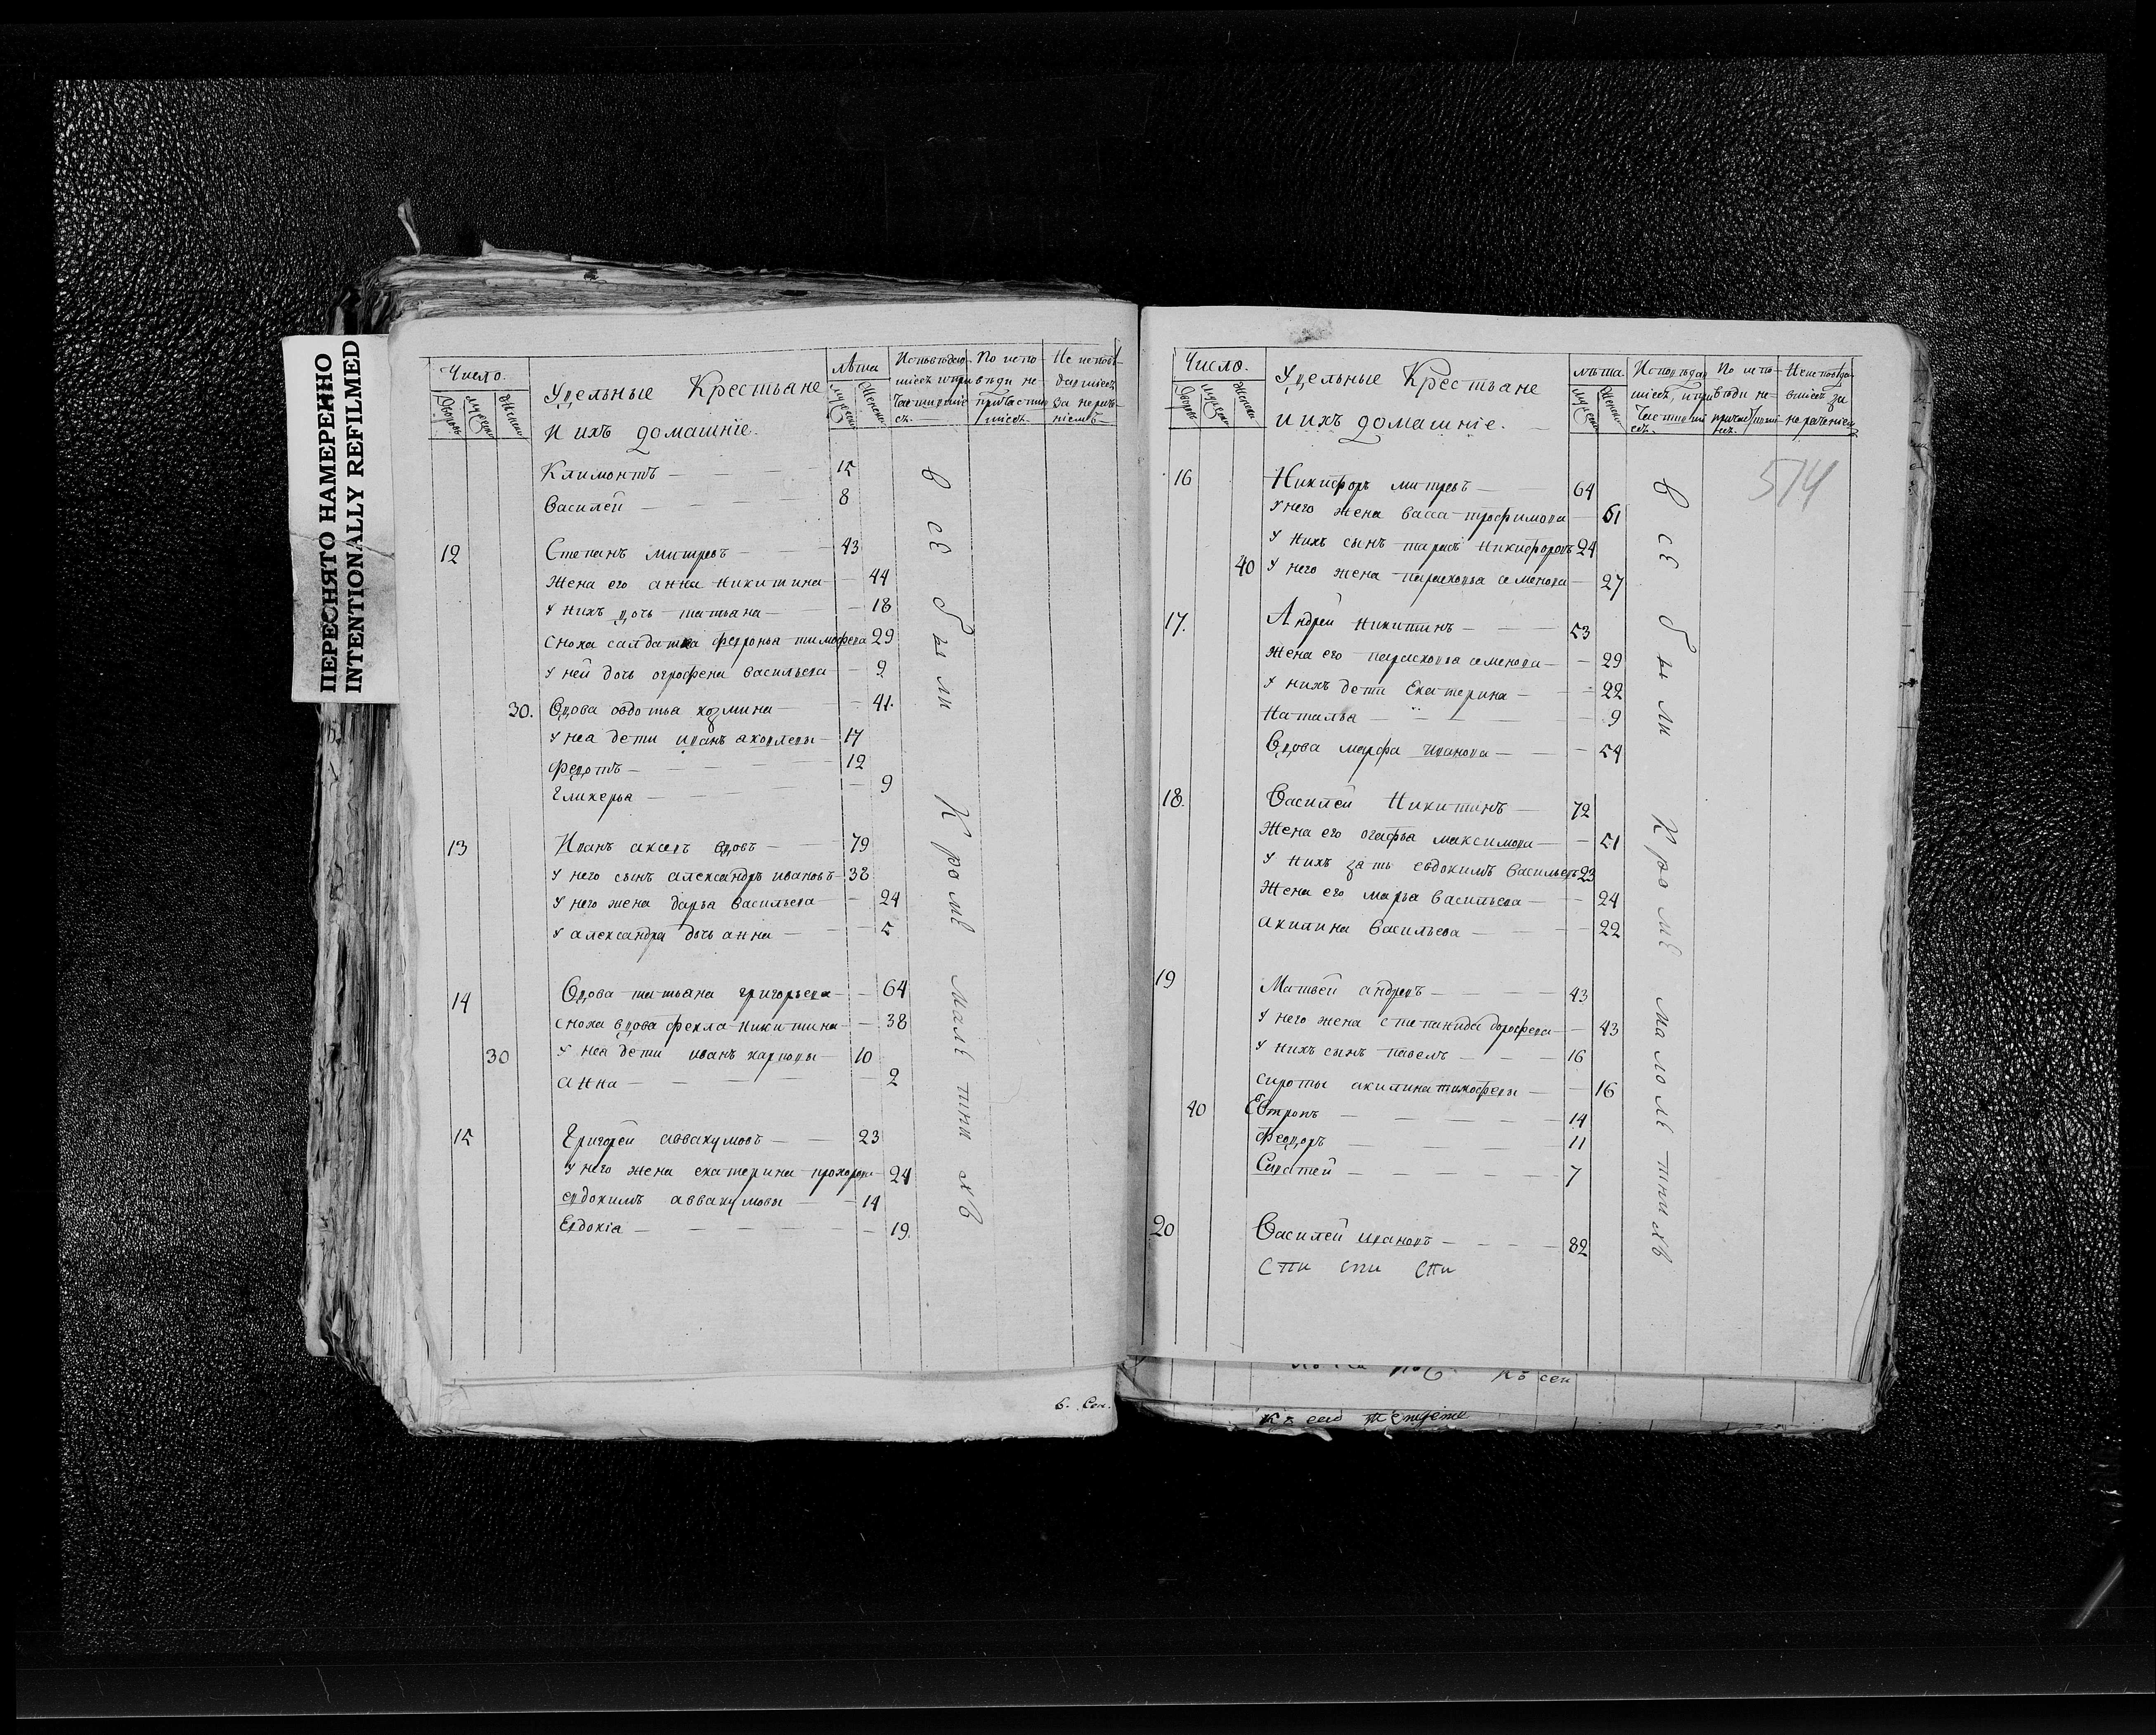 ПЕРЕСНЯТО НАМЕРЕННО
INTENTIONALLY REFILMED
Число.
Дворовъ
Мужеска
Женска
Удельные Крестьяне
И ихъ домашніе.
лѣта
Мужеска
Женска
По испо-
вѣди не-
Не исповѣ-
Климонтъ — 15
Василей — 8
12 Степанъ митревъ — 43
жена его анна никитина — 44
У нихъ дочь татьана — 18
сноха салдатка февронья тимофева 29
У ней дочь огрофена васильева — 9
30. Вдова овдотьа козмина — 41.
У неа дети иванъ аковлевы — 17
Федотъ — 12
Гликерьа — 9
13 Иванъ акалъ вдовъ — 79
У него сынъ александръ ивановъ — 38
У него жена дарьа васильева — 24
У александра дочь анна — 5
14 Вдова татьана григорьева — 64
сноха вдова фекла никитина — 38
30 У неа дети иванъ карповы — 10
анна — 2
15 Григорей аввакумовъ — 23
У него жена екатерина прохорова 24
евдокимъ аввакумовы — 14
Евдокіа — 19.
всѣ были Кромѣ малѣтнихъ
6. Сен.
Число.
Дворовъ
Мужеска
Женска
Удельные Крестьане
И ихъ домашніе. —
лѣта
Мужеска
Женска
По испо-
вѣди не-
514
16 Никифоръ митревъ — 64
У него жена васса трофимова — 61
У нихъ сынъ тарасъ никифоровъ 24
40 У него жена парасковьа семенова — 27
17. Андрей никитинъ — 53
Жена его парасковьа семенова — 29
У нихъ дети Екатерина — 22
Натальа — 9
Вдова марфа иванова — 54
18. Василей Никитинъ — 72
Жена его огафьа максимова — 51
У нихъ зать евдокимъ васильевъ 23
Жена его марьа васильева — 24
акилина васильева — 22
19 Матвей андревъ — 43
У него жена степанида дорофева — 43
У нихъ сынъ павелъ — 16
сироты акилина тимофевы — 16
40 Евтропъ — 14
Федоръ — 11
Саватей — 7
20 Василей ивановъ — 82
всѣ были Кромѣ малолѣтнихъ